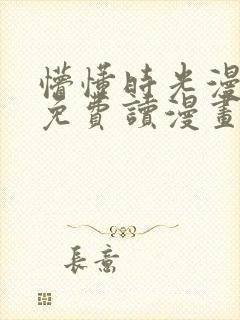 懵懂時光漫
免費讀漫畫
長意